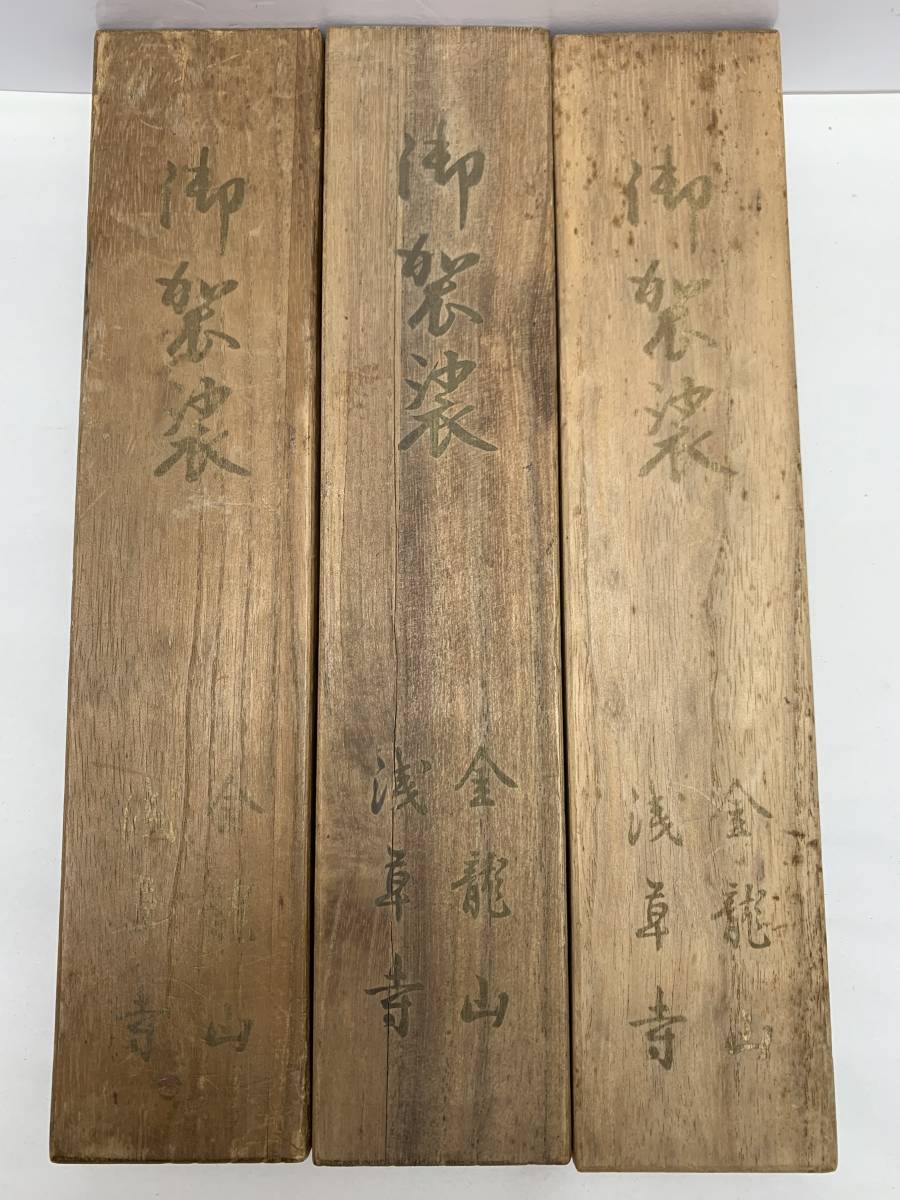 御袈裟
金龍山
浅草寺
御袈裟
金龍山
浅草寺
御袈裟
山
寺